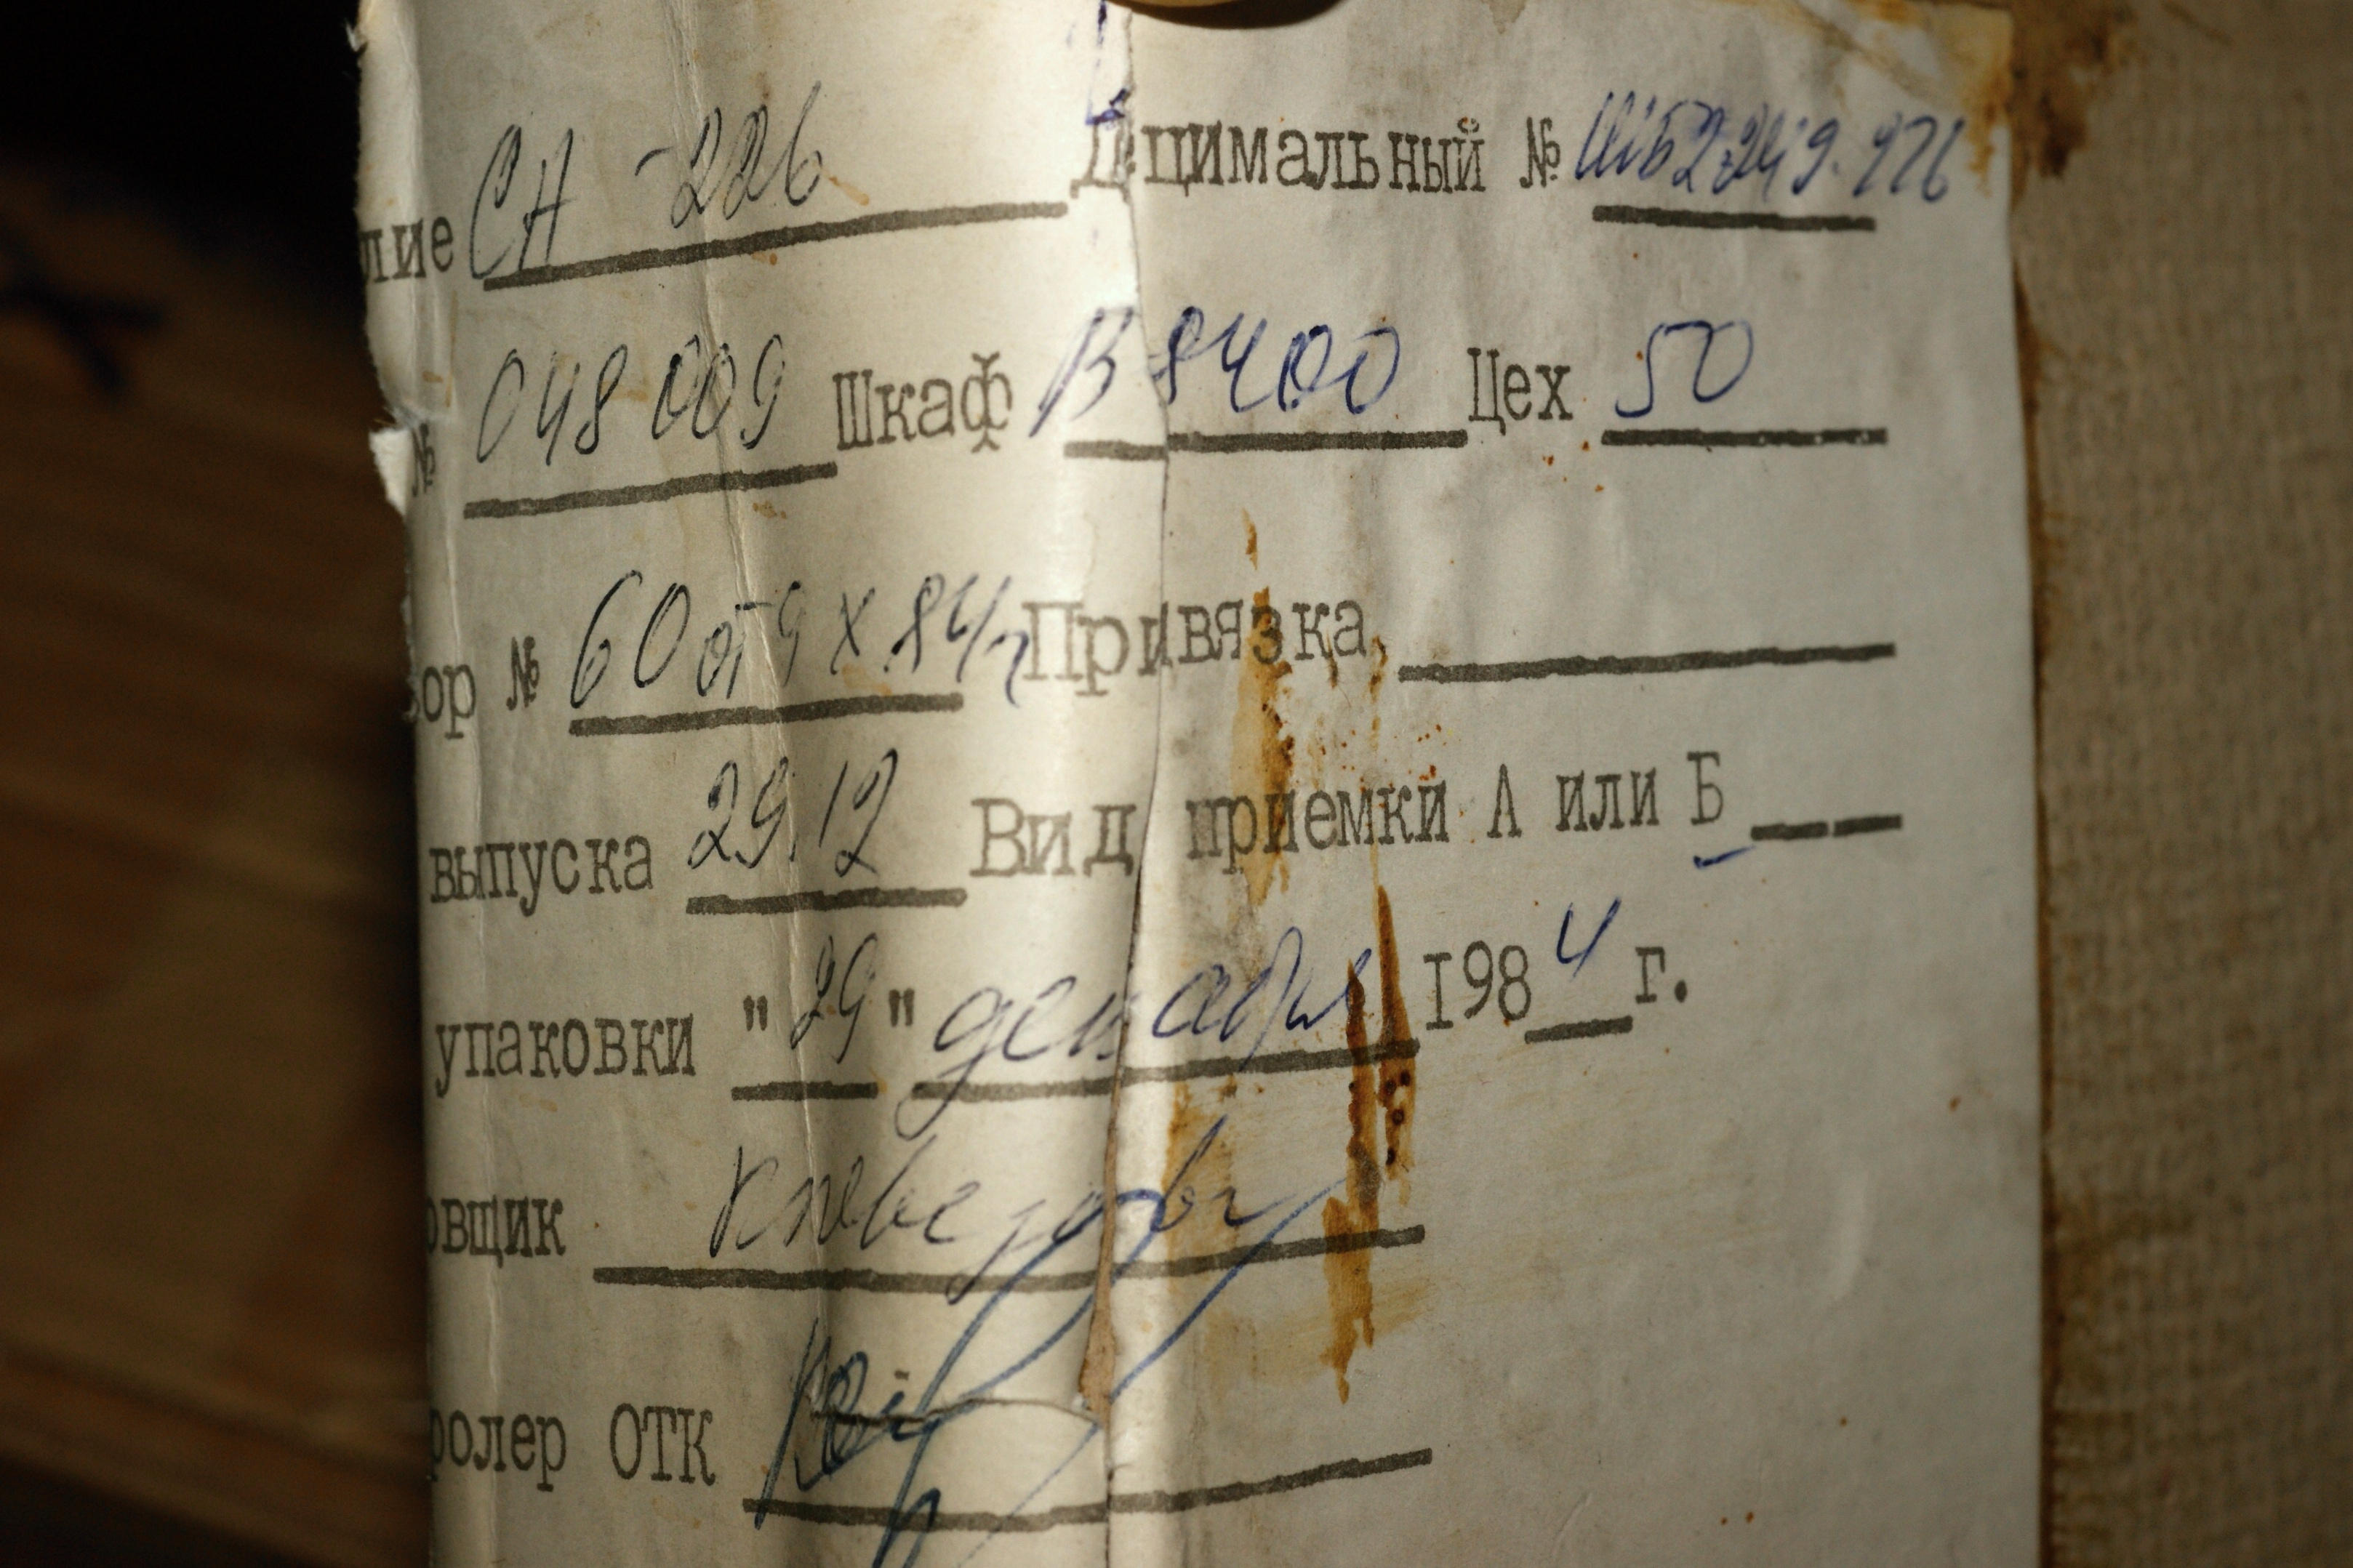 лие СН-226 Дцимальный № ЩБ2.249.276
№ 048009 Шкаф В 8400 Цех 50
ор № 60 Привязка
выпуска 29.12 Вид приемки А или Б
упаковки "29" декабря 1984 г.
овщик
ролер ОТК